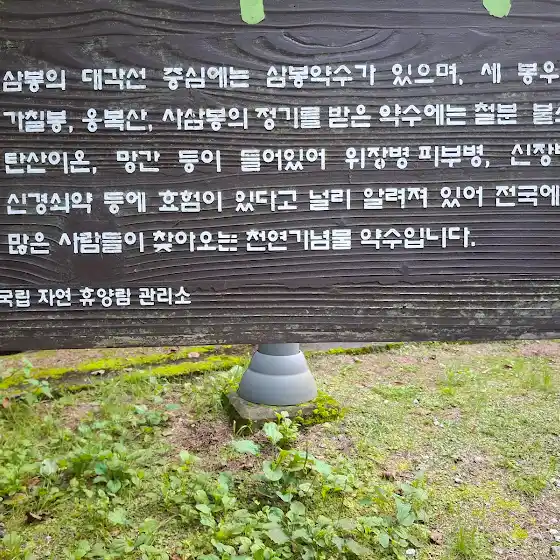 삼봉의 대각선 중심에는 삼봉약수가 있으며, 세 봉우
가칠봉, 응복산, 사삼봉의 정기를 받은 약수에는 철분 불소
탄산이온, 망간 등이 들어있어 위장병 피부병, 신장병
신경쇠약 등에 효험이 있다고 널리 알려져 있어 전국에
많은 사람들이 찾아오는 천연기념물 약수입니다.
국립 자연 휴양림 관리소